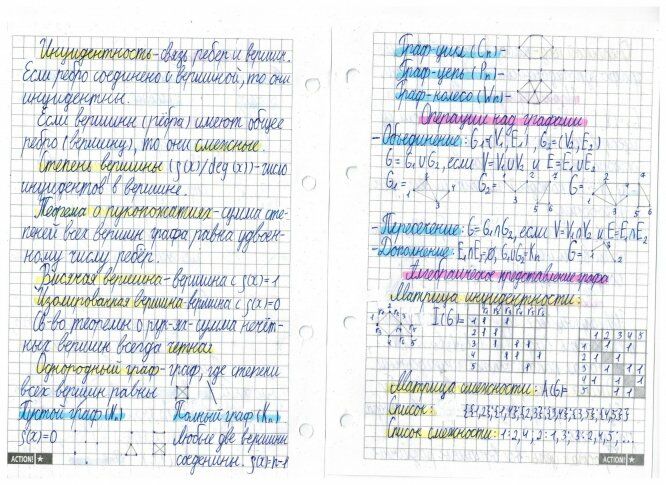 Инцидентность - связь ребер и вершин.
Если ребро соединено с вершиной, то они
инцидентны.
Если вершины (ребра) имеют общее
ребро (вершину), то они смежные.
Степень вершины (ρ(x)/deg(x)) - число
инцидентов в вершине.
Теорема о рукопожатиях - сумма сте-
пеней всех вершин графа равна удвоен-
ному числу ребер.
Висячая вершина - вершина с ρ(x)=1
Изолированная вершина - вершина с ρ(x)=0
Св-во теоремы о рук-ях - сумма нечёт-
ных вершин всегда четная
Однородный граф - граф, где степени
всех вершин равны
Пустой граф
Полный граф (Kn)
ρ(x)=0
Любые две вершины
соединины. ρ(x)=n-1
ACTION!
Граф-цикл (Cn) -
Граф-цепь (Pn) -
Граф-колесо (Wn) -
Операции над графами
- Объединение: G1=(V1, E1), G2=(V2, E2)
G=G1∪G2, если V=V1∪V2 и E=E1∪E2
G1= G2= G=
- Пересечение: G=G1∩G2, если V=V1∩V2 и E=E1∩E2
- Дополнение: E1∩E2=∅, G1∪G2=Kn G=
Алгебраическое представление графа
Матрица инцидентности:
I(G)=
1 2 3 4 5
Матрица смежности: A(G)=
Список:
Список смежности: 1:2,4; 2:1,3; 3:2,4,5; ...
ACTION!